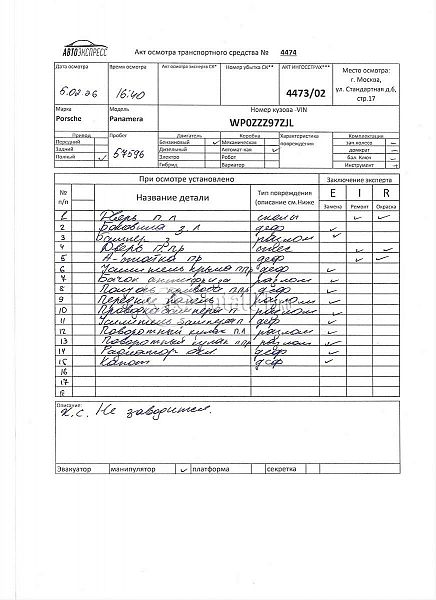 АВТОЭКСПРЕСС
Акт осмотра транспортного средства № 4474
Дата осмотра
Время осмотра
Акт осмотра эксперта СК*
Номер убытка СК**
АКТ ИНГОССТРАХ***
Место осмотра:
г. Москва,
ул. Стандартная д.6,
стр.17
5.02.26
16:40
4473/02
Марка
Модель
Номер кузова -VIN
Porsche
Panamera
WP0ZZZ97ZJL
Привод
Пробег
Двигатель
Коробка
Характеристика повреждений
Комплектация
Передний
Бензиновый ✓
Механическая
зап.колесо —
Задний
57596
Дизельный
Автомат-кая ✓
домкрат —
Полный ✓
Электро
Робот
бал. Ключ —
Гибрид
Вариатор
Инструмент +
№ п/п
При осмотре установлено
Заключение эксперта
Название детали
Тип повреждения (описание см.Ниже
E
I
R
Замена
Ремонт
Окраска
1 Дверь п.л сколы ✓ ✓
2 Боковина з.л деф ✓
3 Бампер з разлом ✓
4 Дверь п.пр ✓ ✓
5 А-стойка пр деф ✓ ✓
6 Усилитель крыла ппр деф ✓
7 Бачок разлом ✓
8 ппр деф ✓
9 Передняя разлом ✓
10 бампера п разлом ✓
11 Усилитель бампера п деф ✓
12 Поворотный кулак пл разлом ✓
13 Поворотный кулак ппр разлом ✓
14 Радиатор охл деф ✓
15 Капот деф ✓
16
17
18
Описание:
х.с. Не заводится.
Эвакуатор
манипулятор ✓
платформа
секретка